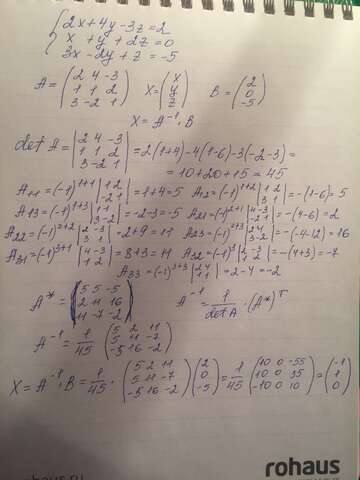 {2x+4y-3z=2
x+y+2z=0
3x-2y+z=-5
A=(2 4 -3
1 1 2
3 -2 1) X=(x
y
z) B=(2
0
-5)
X=A⁻¹·B
det A=|2 4 -3
1 1 2
3 -2 1|=2(1+4)-4(1-6)-3(-2-3)=
=10+20+15=45
A₁₁=(-1)¹⁺¹|1 2
-2 1|=1+4=5 A₁₂=(-1)¹⁺²|1 2
3 1|=-(1-6)=5
A₁₃=(-1)¹⁺³|1 1
3 -2|=-2-3=-5 A₂₁=(-1)²⁺¹|4 -3
-2 1|=-(4-6)=2
A₂₂=(-1)²⁺²|2 -3
3 1|=2+9=11 A₂₃=(-1)²⁺³|2 4
3 -2|=-(-4-12)=16
A₃₁=(-1)³⁺¹|4 -3
1 2|=8+3=11 A₃₂=(-1)³⁺²|2 -3
1 2|=-(4+3)=-7
A₃₃=(-1)³⁺³|2 4
1 1|=2-4=-2
A*=(5 5 -5
2 11 16
11 -7 -2) A⁻¹=1/det A·(A*)ᵀ
A⁻¹=1/45(5 2 11
5 11 -7
-5 16 -2)
X=A⁻¹·B=1/45·(5 2 11
5 11 -7
-5 16 -2)(2
0
-5)=1/45(10 0 -55
10 0 35
-10 0 10)=(-1
1
0)
rohaus
rohaus.ru